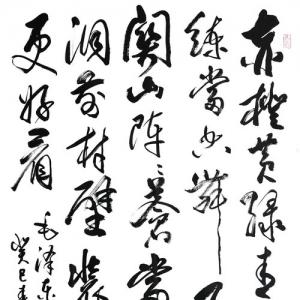 赤橙黄绿青
练當空舞
關山阵々苍當
洞前村壁装
更好看
毛泽东
癸巳春